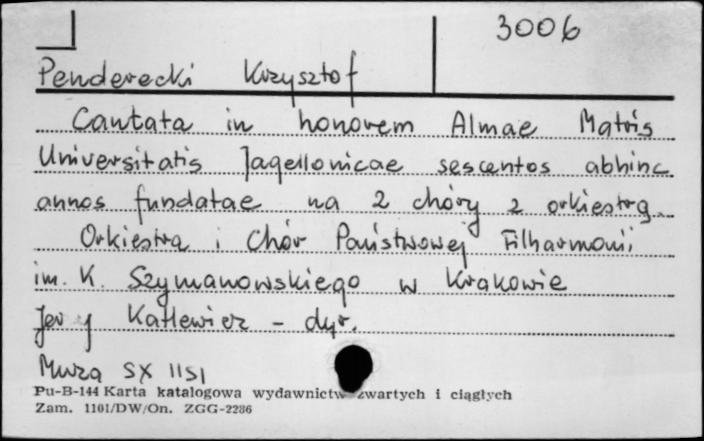 3006
Penderecki Krzysztof
Cantata in honorem Almae Matris
Universitatis Jagellonicae sescentos abhinc
annos fundatae na 2 chóry z orkiestrą.
Orkiestra i Chór Państwowej Filharmonii
im. K. Szymanowskiego w Krakowie
Jerzy Katlewicz - dyr.
Muza SX 1151
Pu-B-144 Karta katalogowa wydawnictw zwartych i ciągłych
Zam. 1101/DW/On. ZGG-2286